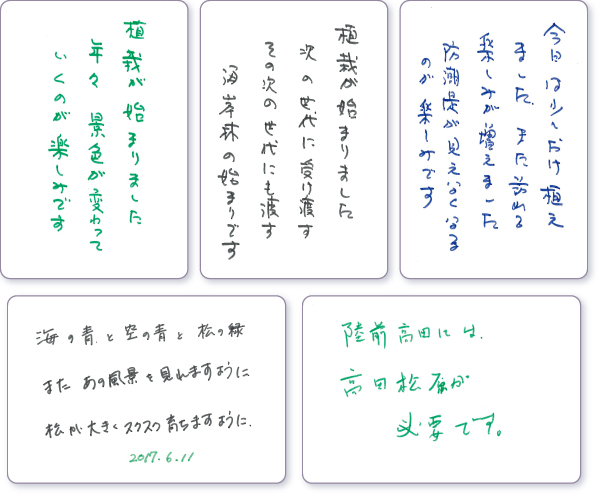 植栽が始まりました
年々 景色が変わって
いくのが楽しみです
植栽が始まりました
次の世代に受け渡す
その次の世代にも渡す
海岸林の始まりです
今日は少しだけ植え
ました。また訪れる
楽しみが増えました
防潮堤が見えなくなる
のが楽しみです
海の青と空の青と松の緑
また あの風景を見れますように
松が大きくスクスク育ちますように.
2017.6.11
陸前高田には、
高田松原が
必要です。